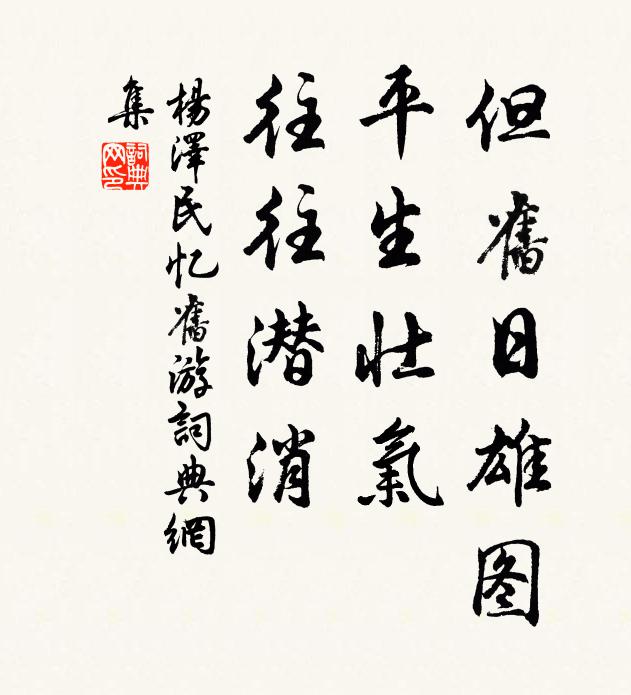 但舊日雄图
平生壯氣
往往潛消
楊澤民忆舊游詞典網
集
詞典
网印